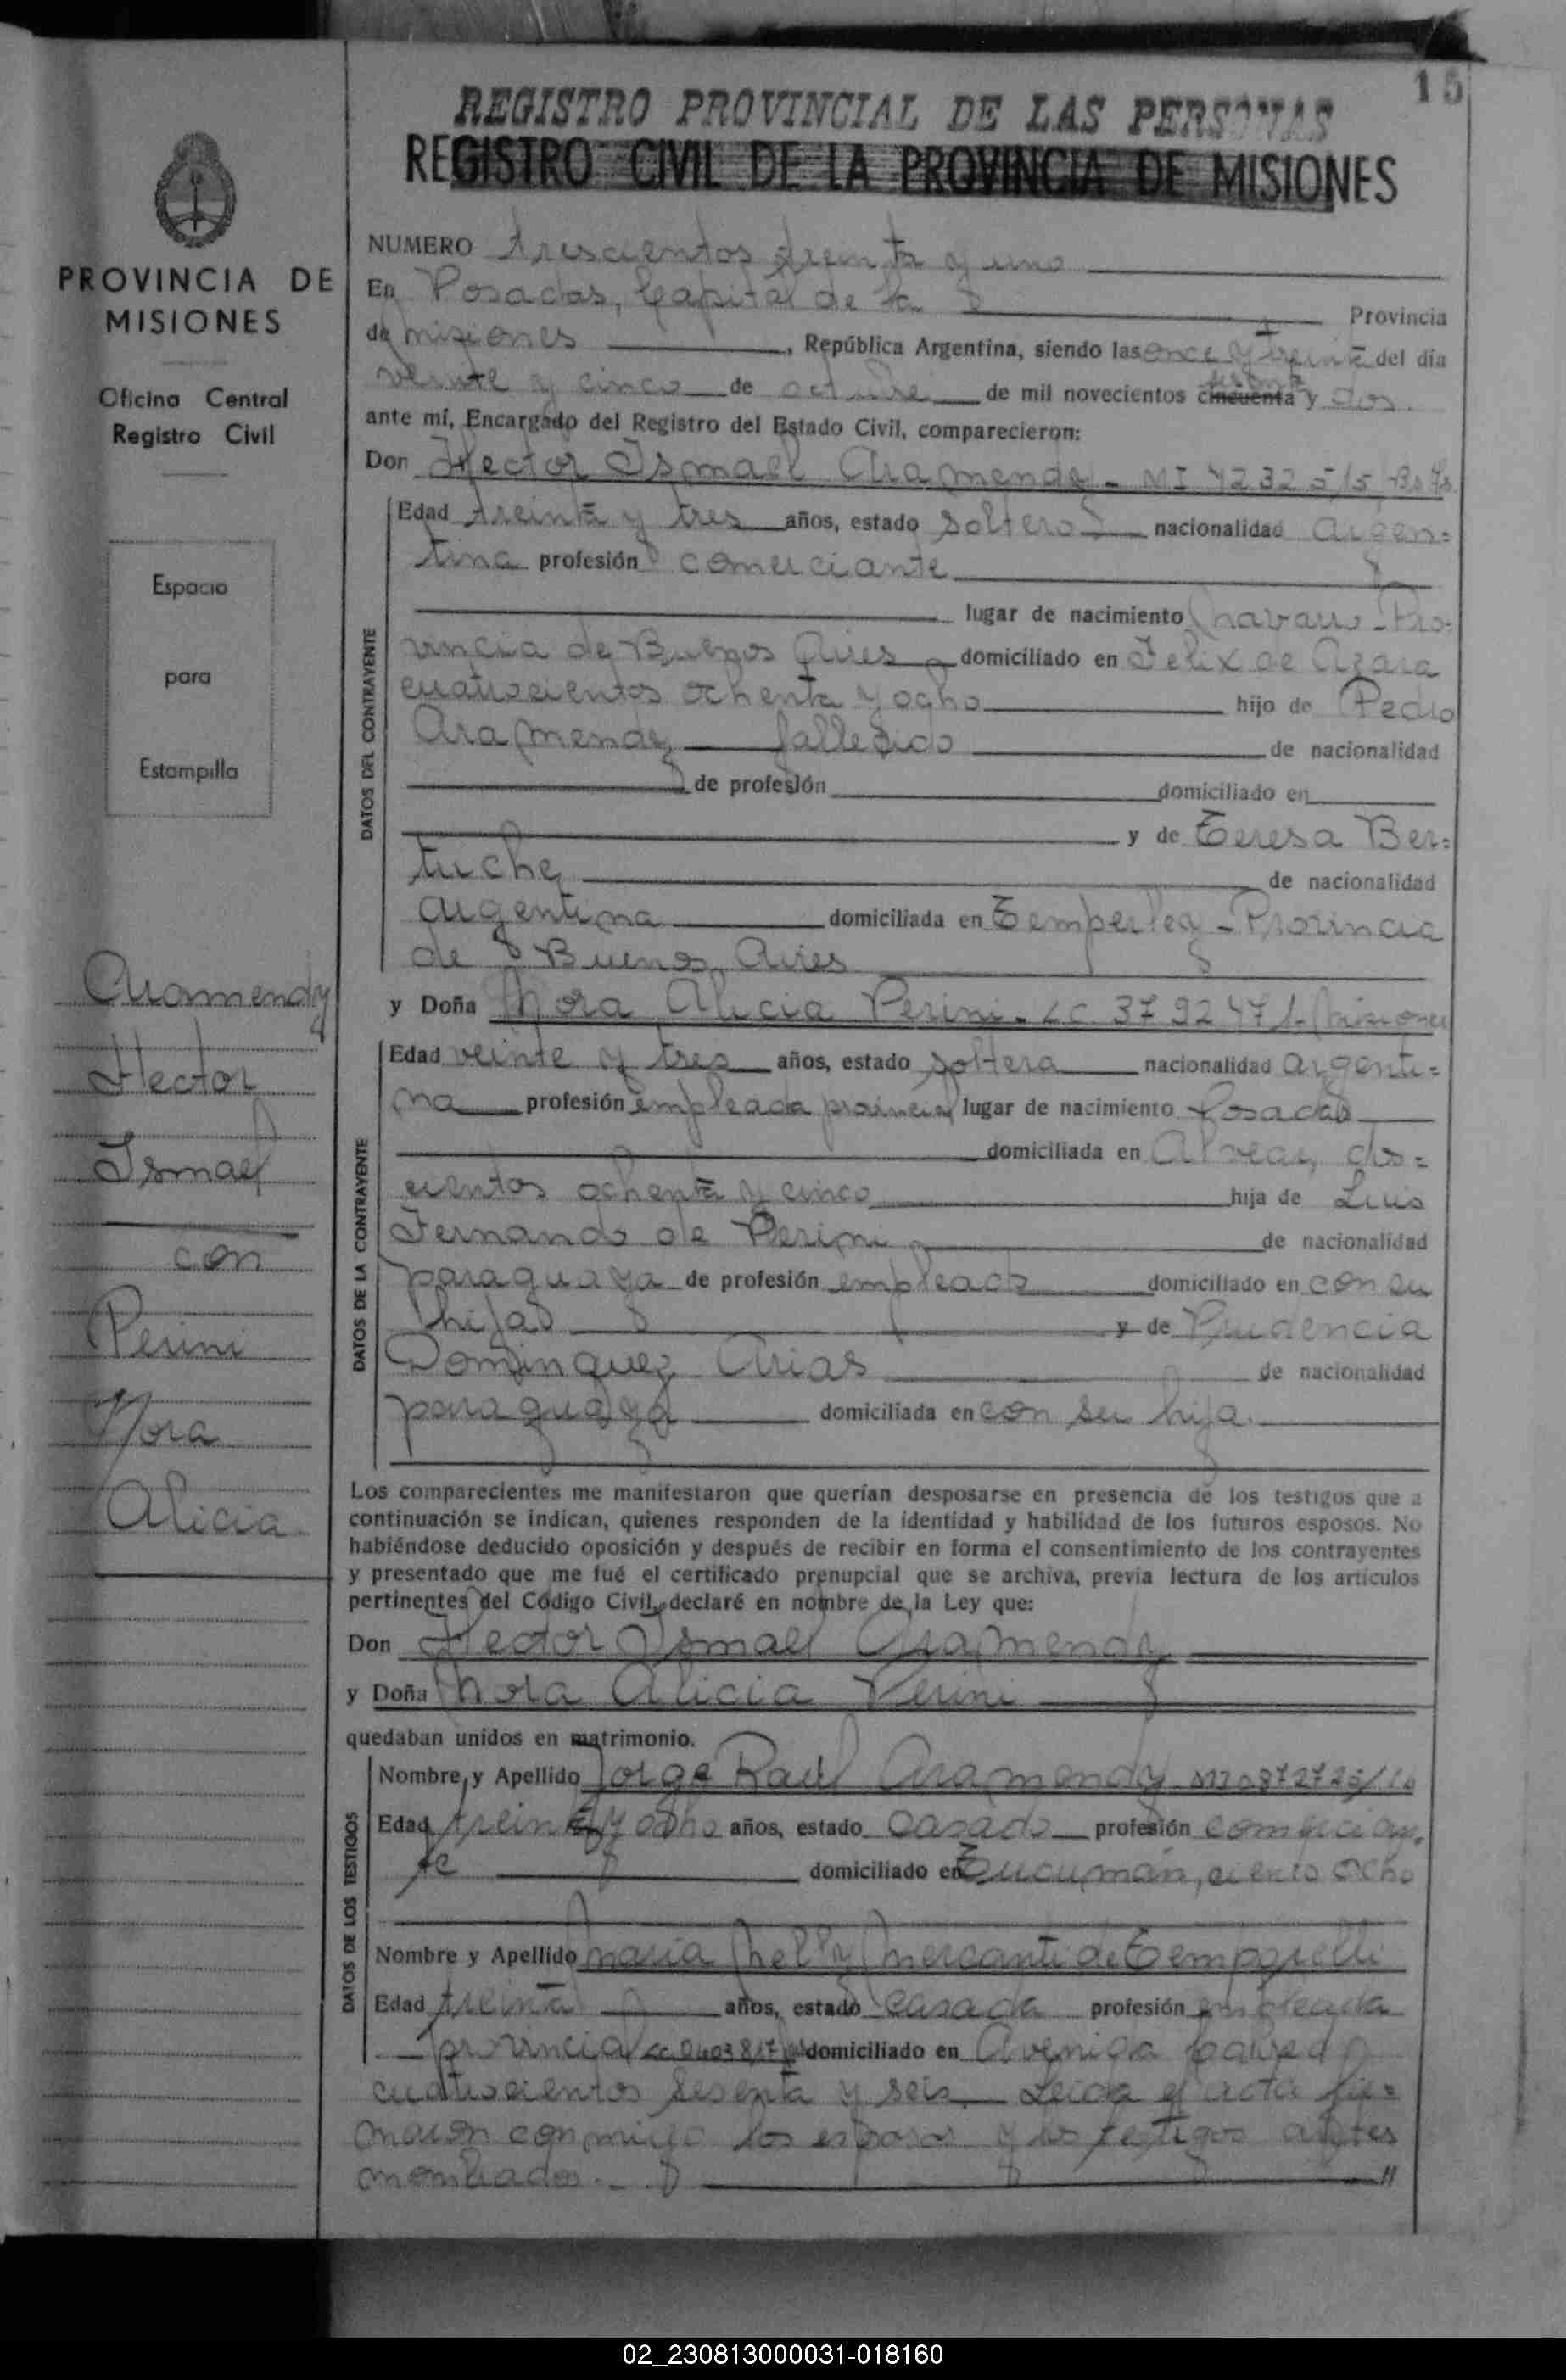 15
REGISTRO PROVINCIAL DE LAS PERSONAS
REGISTRO CIVIL DE LA PROVINCIA DE MISIONES
PROVINCIA DE
MISIONES
Oficina Central
Registro Civil
Espacio
para
Estampilla
Aramendy
Hector
Ismael
con
Perini
Nora
Alicia
NUMERO trescientos treinta y uno
En Posadas, Capital de la Provincia
de misiones, República Argentina, siendo las once y treinta del día
veinte y cinco de octubre de mil novecientos cincuenta sesenta y dos.
ante mí, Encargado del Registro del Estado Civil, comparecieron:
Don Hector Ismael Aramendy - MI 4232515 Bs As
DATOS DEL CONTRAYENTE
Edad treinta y tres años, estado soltero nacionalidad argen=
tina profesión comerciante
lugar de nacimiento Navarro - Pro-
vincia de Buenos Aires domiciliado en Felix de Azara
cuatrocientos ochenta y ocho hijo de Pedro
Aramendy fallecido de nacionalidad
de profesión domiciliado en
y de Teresa Ber=
tuche de nacionalidad
argentina domiciliada en Temperley - Provincia
de Buenos Aires
y Doña Nora Alicia Perini - LC. 3792471 - Misiones
DATOS DE LA CONTRAYENTE
Edad veinte y tres años, estado soltera nacionalidad argenti=
na profesión empleada provincial lugar de nacimiento Posadas
domiciliada en Alvear, dos=
cientos ochenta y cinco hija de Luis
Fernando de Perini de nacionalidad
paraguaya de profesión empleado domiciliado en con su
hija y de Prudencia
Dominguez Arias de nacionalidad
paraguaya domiciliada en con su hija.
Los comparecientes me manifestaron que querían desposarse en presencia de los testigos que a
continuación se indican, quienes responden de la identidad y habilidad de los futuros esposos. No
habiéndose deducido oposición y después de recibir en forma el consentimiento de los contrayentes
y presentado que me fué el certificado prenupcial que se archiva, previa lectura de los artículos
pertinentes del Código Civil, declaré en nombre de la Ley que:
Don Hector Ismael Aramendy
y Doña Nora Alicia Perini
quedaban unidos en matrimonio.
DATOS DE LOS TESTIGOS
Nombre y Apellido Jorge Raul Aramendy
Edad treinta y ocho años, estado casado profesión comercian-
te domiciliado en Tucumán, ciento ocho
Nombre y Apellido Maria Nelly Mercanti de
Edad treinta años, estado casada profesión empleada
provincial domiciliado en Avenida
cuatrocientos sesenta y seis. Leida el acta fir=
maron conmigo los esposos y los testigos antes
nombrados.-
02_230813000031-018160